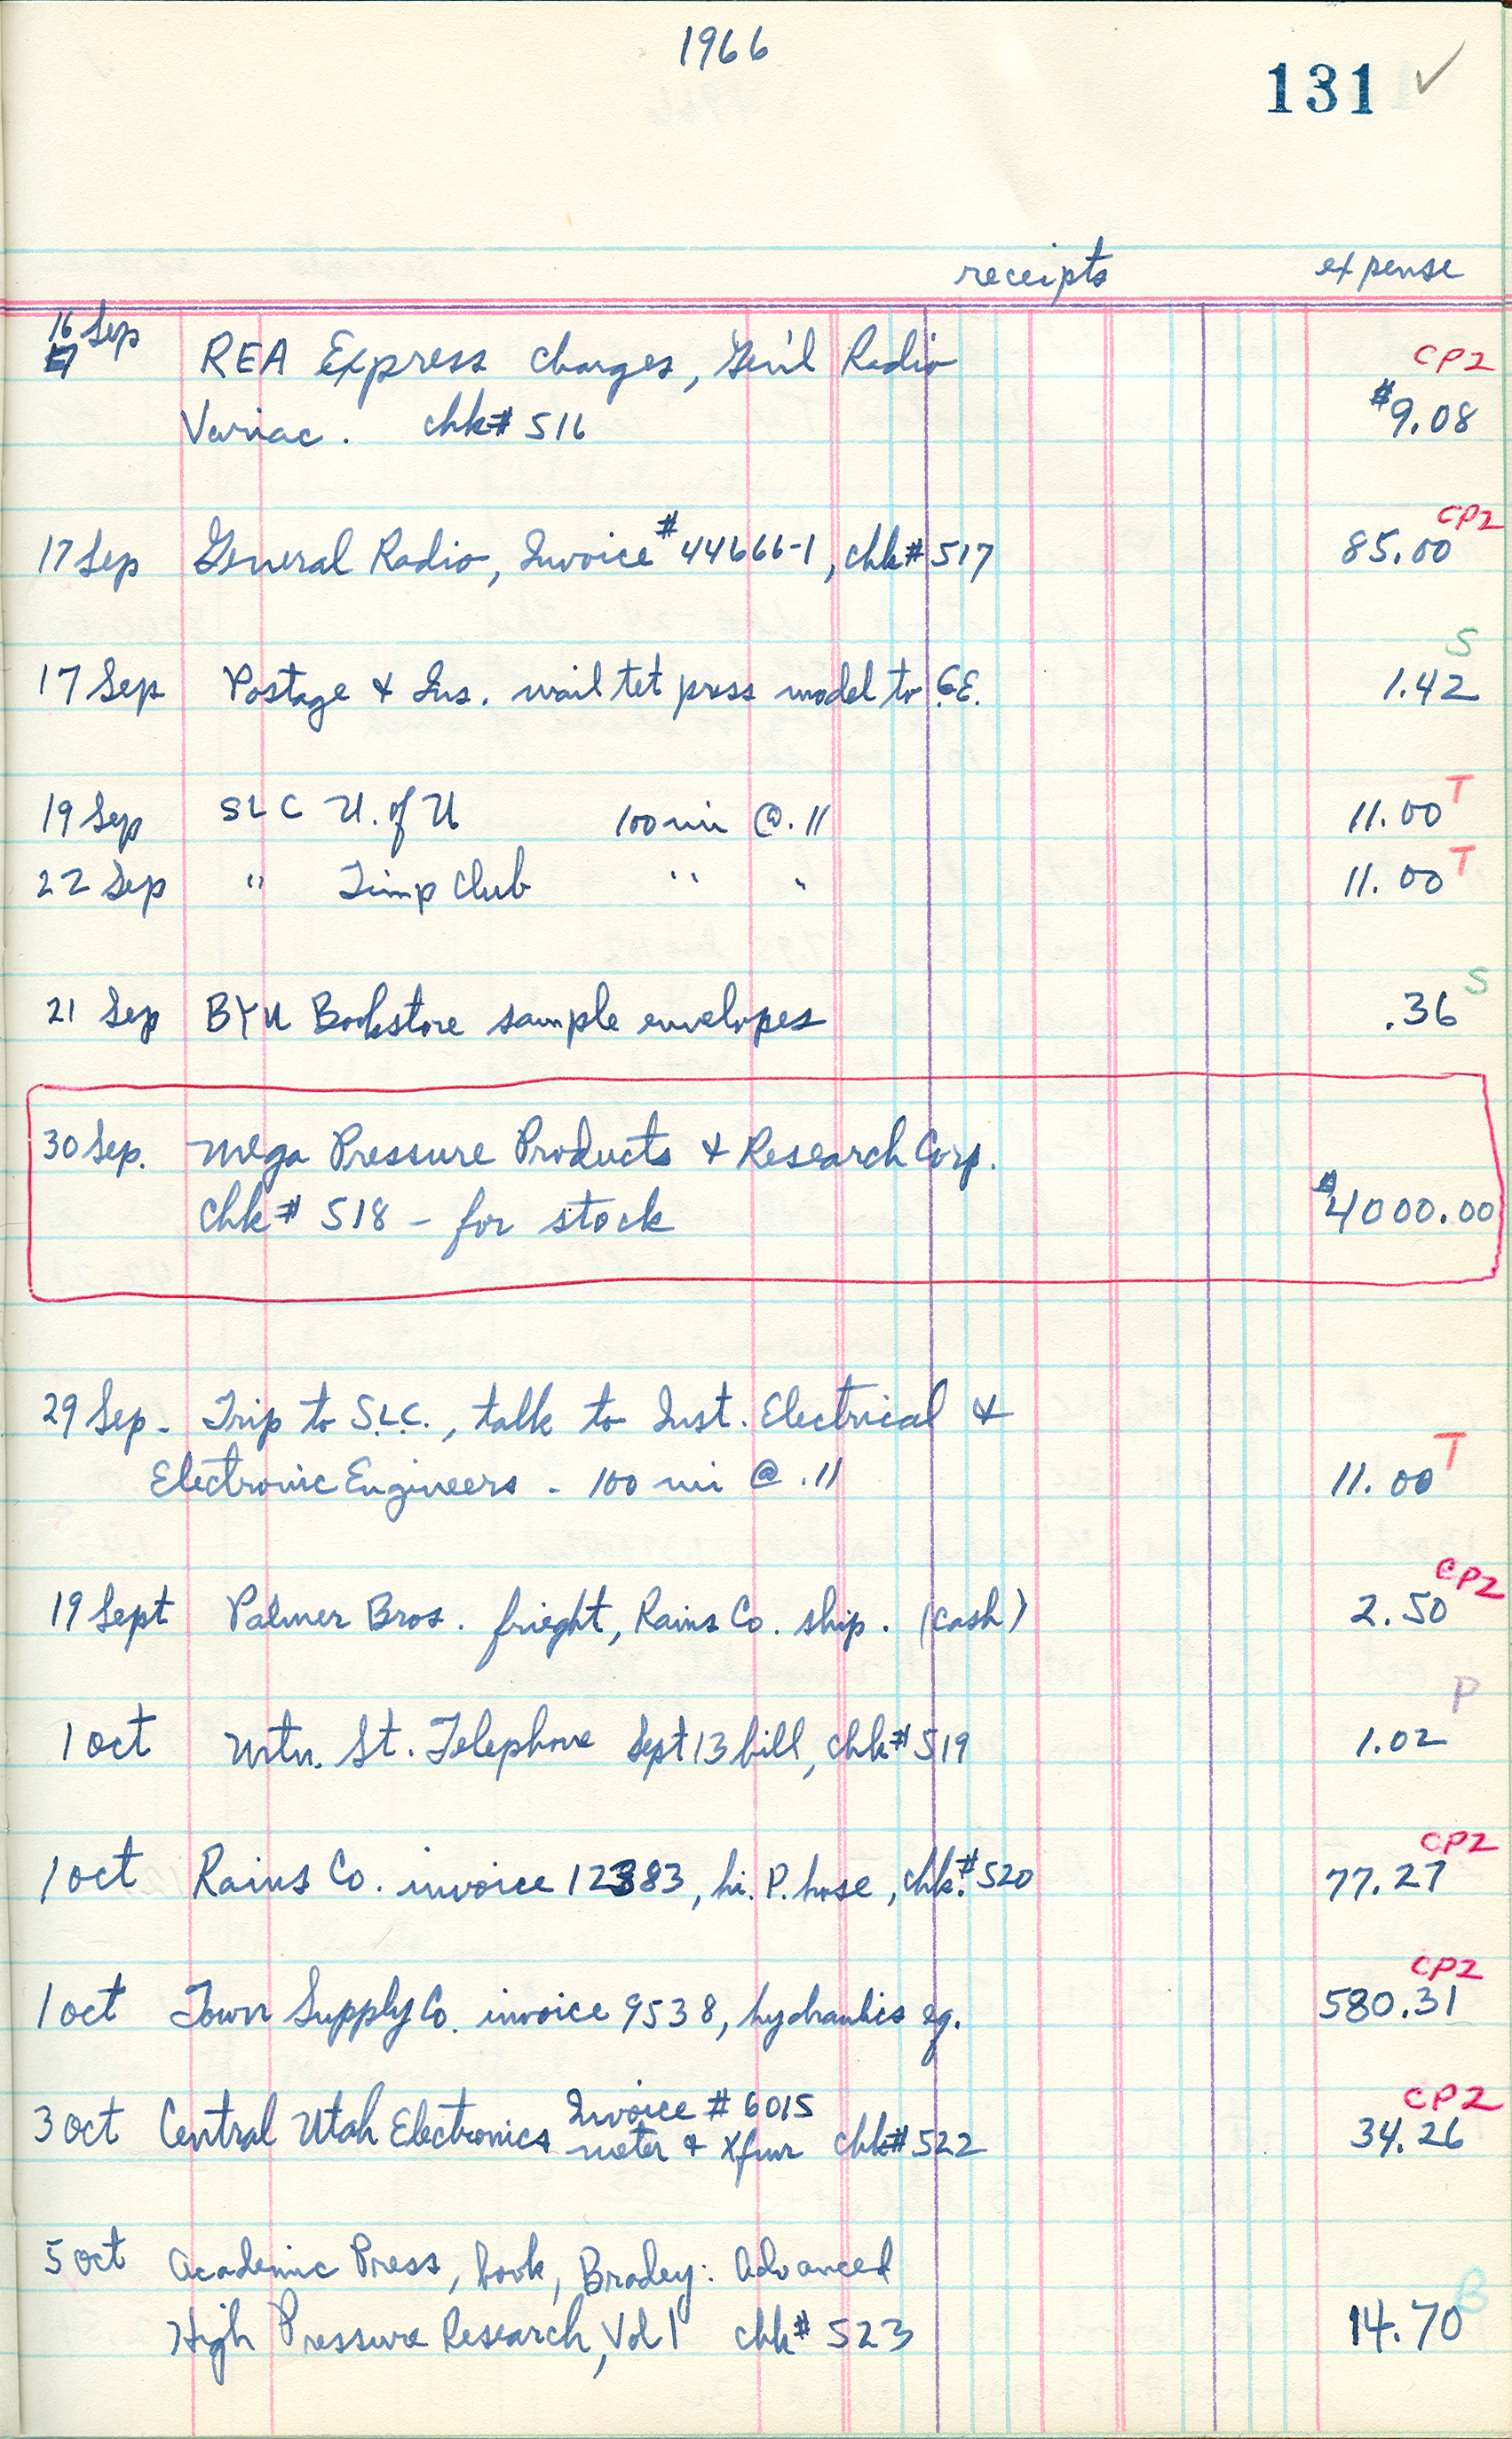 1966
131 ✓
receipts expense
16 Sep
17
REA Express charges, Gen'l Radio CP2
Variac. chk# 516 $9.08
CP2
17 Sep General Radio, Invoice #44666-1, chk# 517 85.00
S
17 Sep Postage & Ins. mail tet press model to G.E. 1.42
19 Sep SLC U. of U 100 mi @ .11 11.00 T
22 Sep " Timp Club " " 11.00 T
S
21 Sep BYU Bookstore sample envelopes .36
30 Sep. Mega Pressure Products & Research Corp.
chk# 518 - for stock $4000.00
29 Sep - Trip to S.L.C., talk to Inst. Electrical &
Electronic Engineers - 100 mi @ .11 11.00 T
CP2
19 Sept Palmer Bros. frieght, Rains Co. ship. (cash) 2.50
P
1 Oct Mtn. St. Telephone Sept 13 bill, chk# 519 1.02
CP2
1 Oct Rains Co. invoice 12383, hi. P. hose, chk.# 520 77.27
CP2
1 Oct Town Supply Co. invoice 9538, hydraulics eq. 580.31
Invoice # 6015 CP2
3 Oct Central Utah Electronics meter & Xfmr chk# 522 34.26
5 Oct Academic Press, book, Bradley: Advanced
High Pressure Research, Vol 1 chk# 523 14.70 B